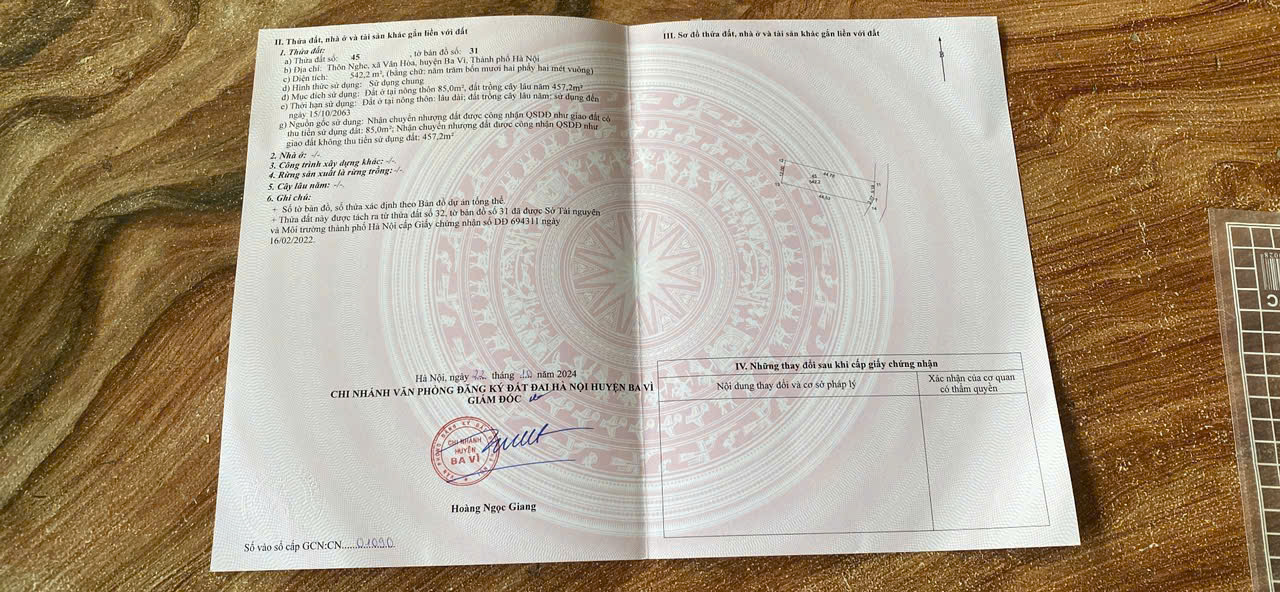 II. Thửa đất, nhà ở và tài sản khác gắn liền với đất
1. Thửa đất:
a) Thửa đất số: 45 , tờ bản đồ số: 31
b) Địa chỉ: Thôn Nghe, xã Vân Hòa, huyện Ba Vì, Thành phố Hà Nội
c) Diện tích: 542,2 m², (bằng chữ: năm trăm bốn mươi hai phẩy hai mét vuông)
d) Hình thức sử dụng: Sử dụng chung
đ) Mục đích sử dụng: Đất ở tại nông thôn 85,0m², đất trồng cây lâu năm 457,2m²
e) Thời hạn sử dụng: Đất ở tại nông thôn: lâu dài; đất trồng cây lâu năm: sử dụng đến
ngày 15/10/2063
g) Nguồn gốc sử dụng: Nhận chuyển nhượng đất được công nhận QSDĐ như giao đất có
thu tiền sử dụng đất: 85,0m²; Nhận chuyển nhượng đất được công nhận QSDĐ như
giao đất không thu tiền sử dụng đất: 457,2m²
2. Nhà ở: -/-.
3. Công trình xây dựng khác: -/-.
4. Rừng sản xuất là rừng trồng: -/-.
5. Cây lâu năm: -/-.
6. Ghi chú:
+ Số tờ bản đồ, số thửa xác định theo Bản đồ dự án tổng thể.
+ Thửa đất này được tách ra từ thửa đất số 32, tờ bản đồ số 31 đã được Sở Tài nguyên
và Môi trường thành phố Hà Nội cấp Giấy chứng nhận số DĐ 694311 ngày
16/02/2022.
Hà Nội, ngày 22 tháng 10 năm 2024
CHI NHÁNH VĂN PHÒNG ĐĂNG KÝ ĐẤT ĐAI HÀ NỘI HUYỆN BA VÌ
GIÁM ĐỐC
CHI NHÁNH
HUYỆN
BA VÌ
Hoàng Ngọc Giang
Số vào sổ cấp GCN:CN......01090
III. Sơ đồ thửa đất, nhà ở và tài sản khác gắn liền với đất
B
45
542.2
44.78
IV. Những thay đổi sau khi cấp giấy chứng nhận
Nội dung thay đổi và cơ sở pháp lý
Xác nhận của cơ quan
có thẩm quyền